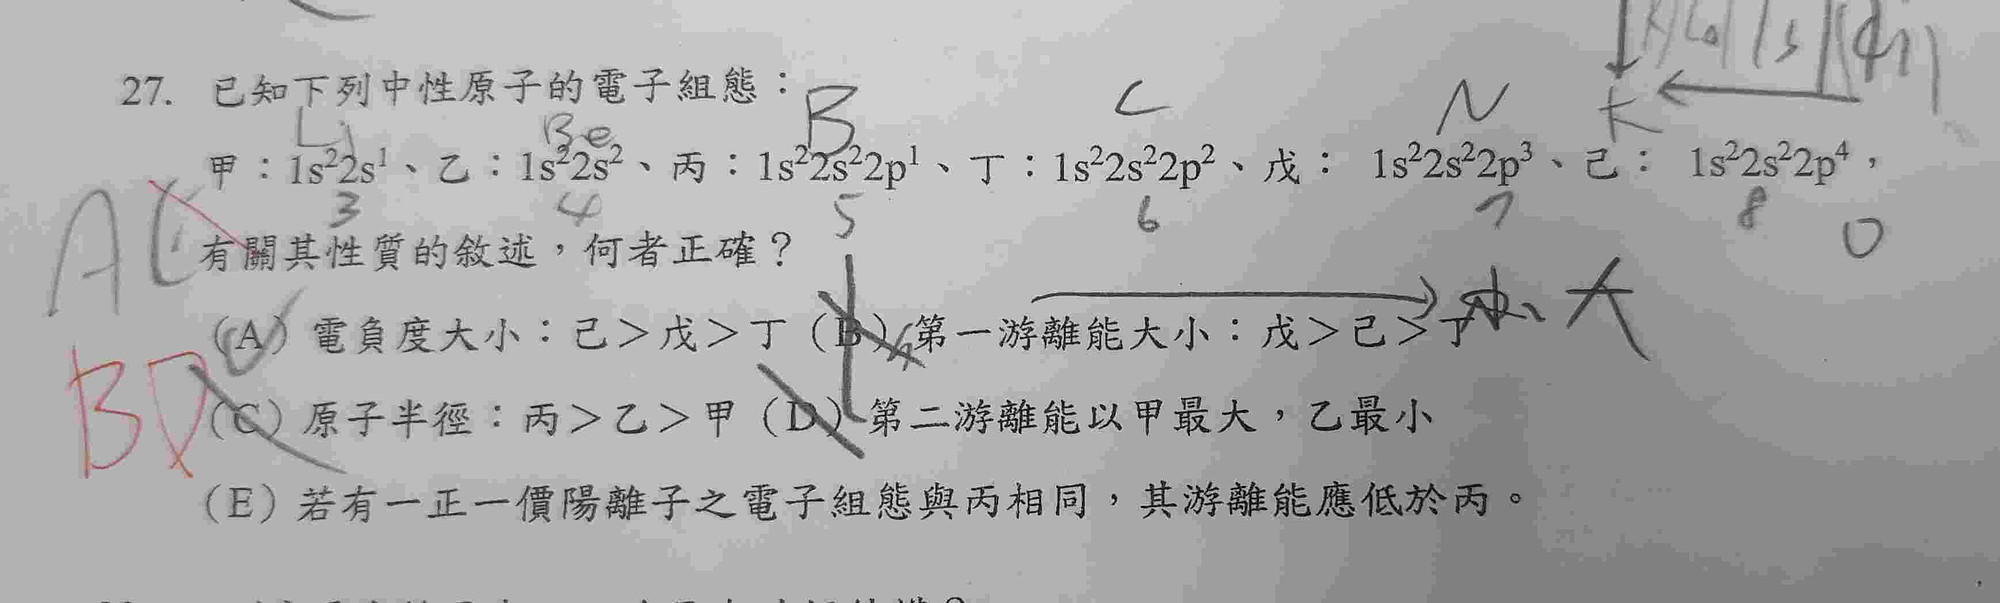 27. 已知下列中性原子的電子組態：
Li Be B C N K
甲：1s²2s¹、乙：1s²2s²、丙：1s²2s²2p¹、丁：1s²2s²2p²、戊： 1s²2s²2p³、己： 1s²2s²2p⁴，
3 4 5 6 7 8 O
有關其性質的敘述，何者正確？
A
(A) 電負度大小：己＞戊＞丁 (B) 第一游離能大小：戊＞己＞丁 大
BD
(C) 原子半徑：丙＞乙＞甲 (D) 第二游離能以甲最大，乙最小
(E) 若有一正一價陽離子之電子組態與丙相同，其游離能應低於丙。